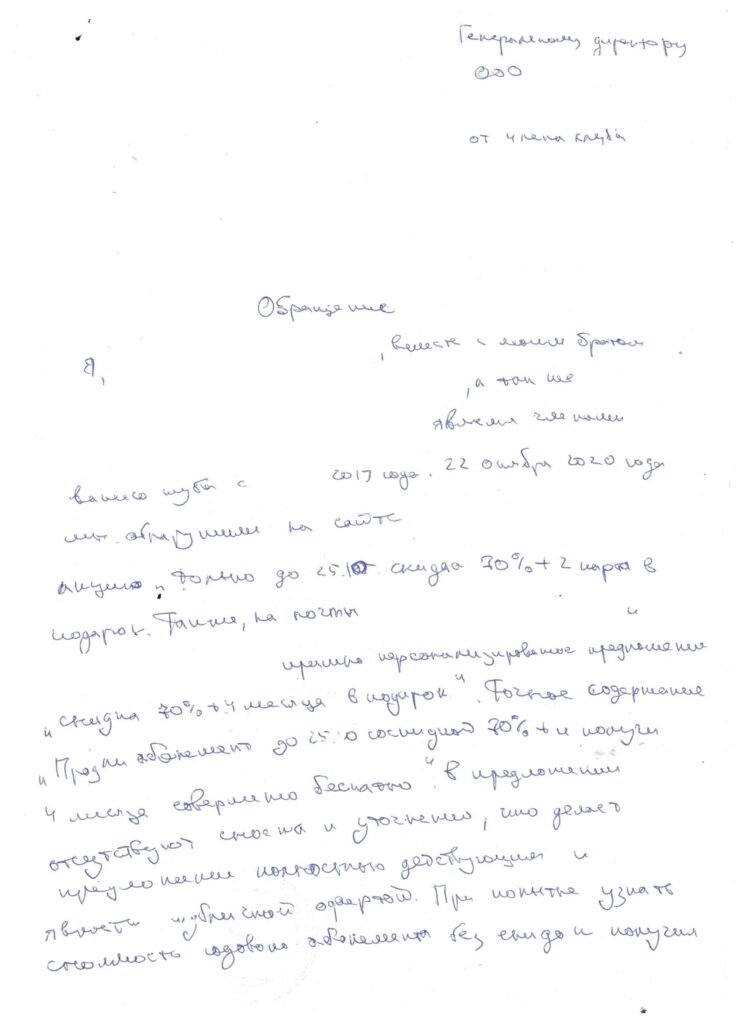 Генеральному директору
ООО
от члена клуба
Обращение
Я,
, вместе с моим братом
, а так же
являемся членами
вашего клуба с 2017 года. 22 октября 2020 года
мы обнаружили на сайте
акцию „Только до 25.10 скидка 70% + 2 карта в
подарок. Также, на почты и
пришло персонализированое предложение
„скидка 70% + 4 месяца в подарок". Точное содержание
„Продли абонемент до 25.10 со скидкой 70% + и получи
4 месяца совершено бесплатно". В предложении
отсутствуют сноска и уточнение, что делает
предложение полностью действующим и
является публичной офертой. При попытке узнать
стоимость годового абонемента без скидок и получил